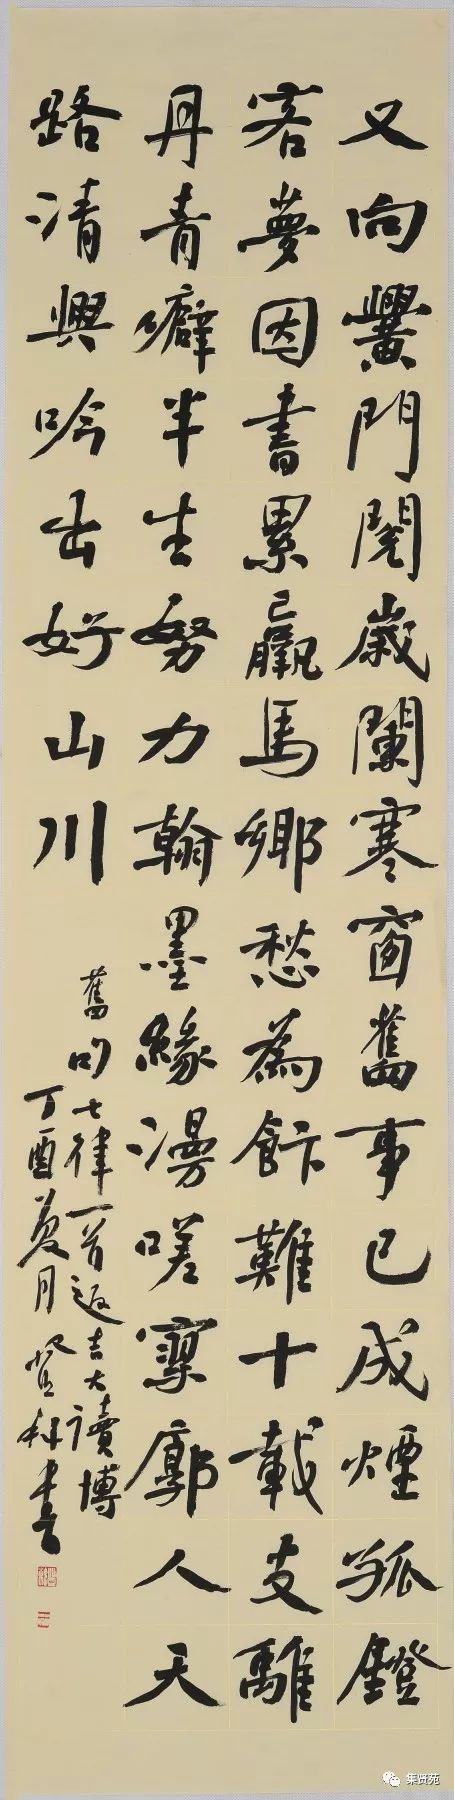 又向黌門閱歲闌寒窗舊事已成煙孤鐙
客夢因書累羸馬鄉愁為飰難十載支離
丹青癖半生努力翰墨緣漫嗟寥廓人天
路清興吟出好山川
舊句七律一首返吉大讀博
丁酉夏月登科書
集贤苑